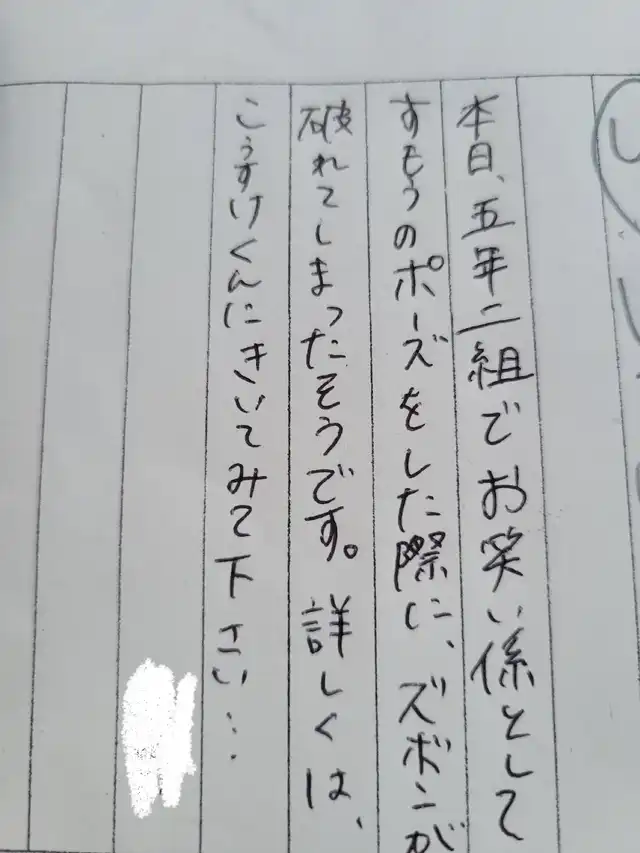 本日、五年二組でお笑い係として
すもうのポーズをした際に、ズボンが
破れてしまったそうです。詳しくは、
こうすけくんにきいてみて下さい…